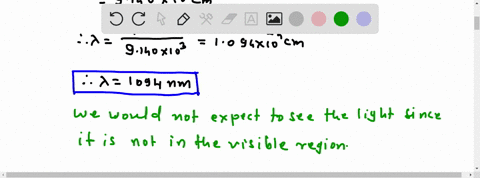 ∴λ = 1/9.140×10³ = 1.094×10⁻⁴cm
∴ λ = 1094 nm
we would not expect to see the light since
it is not in the visible region.